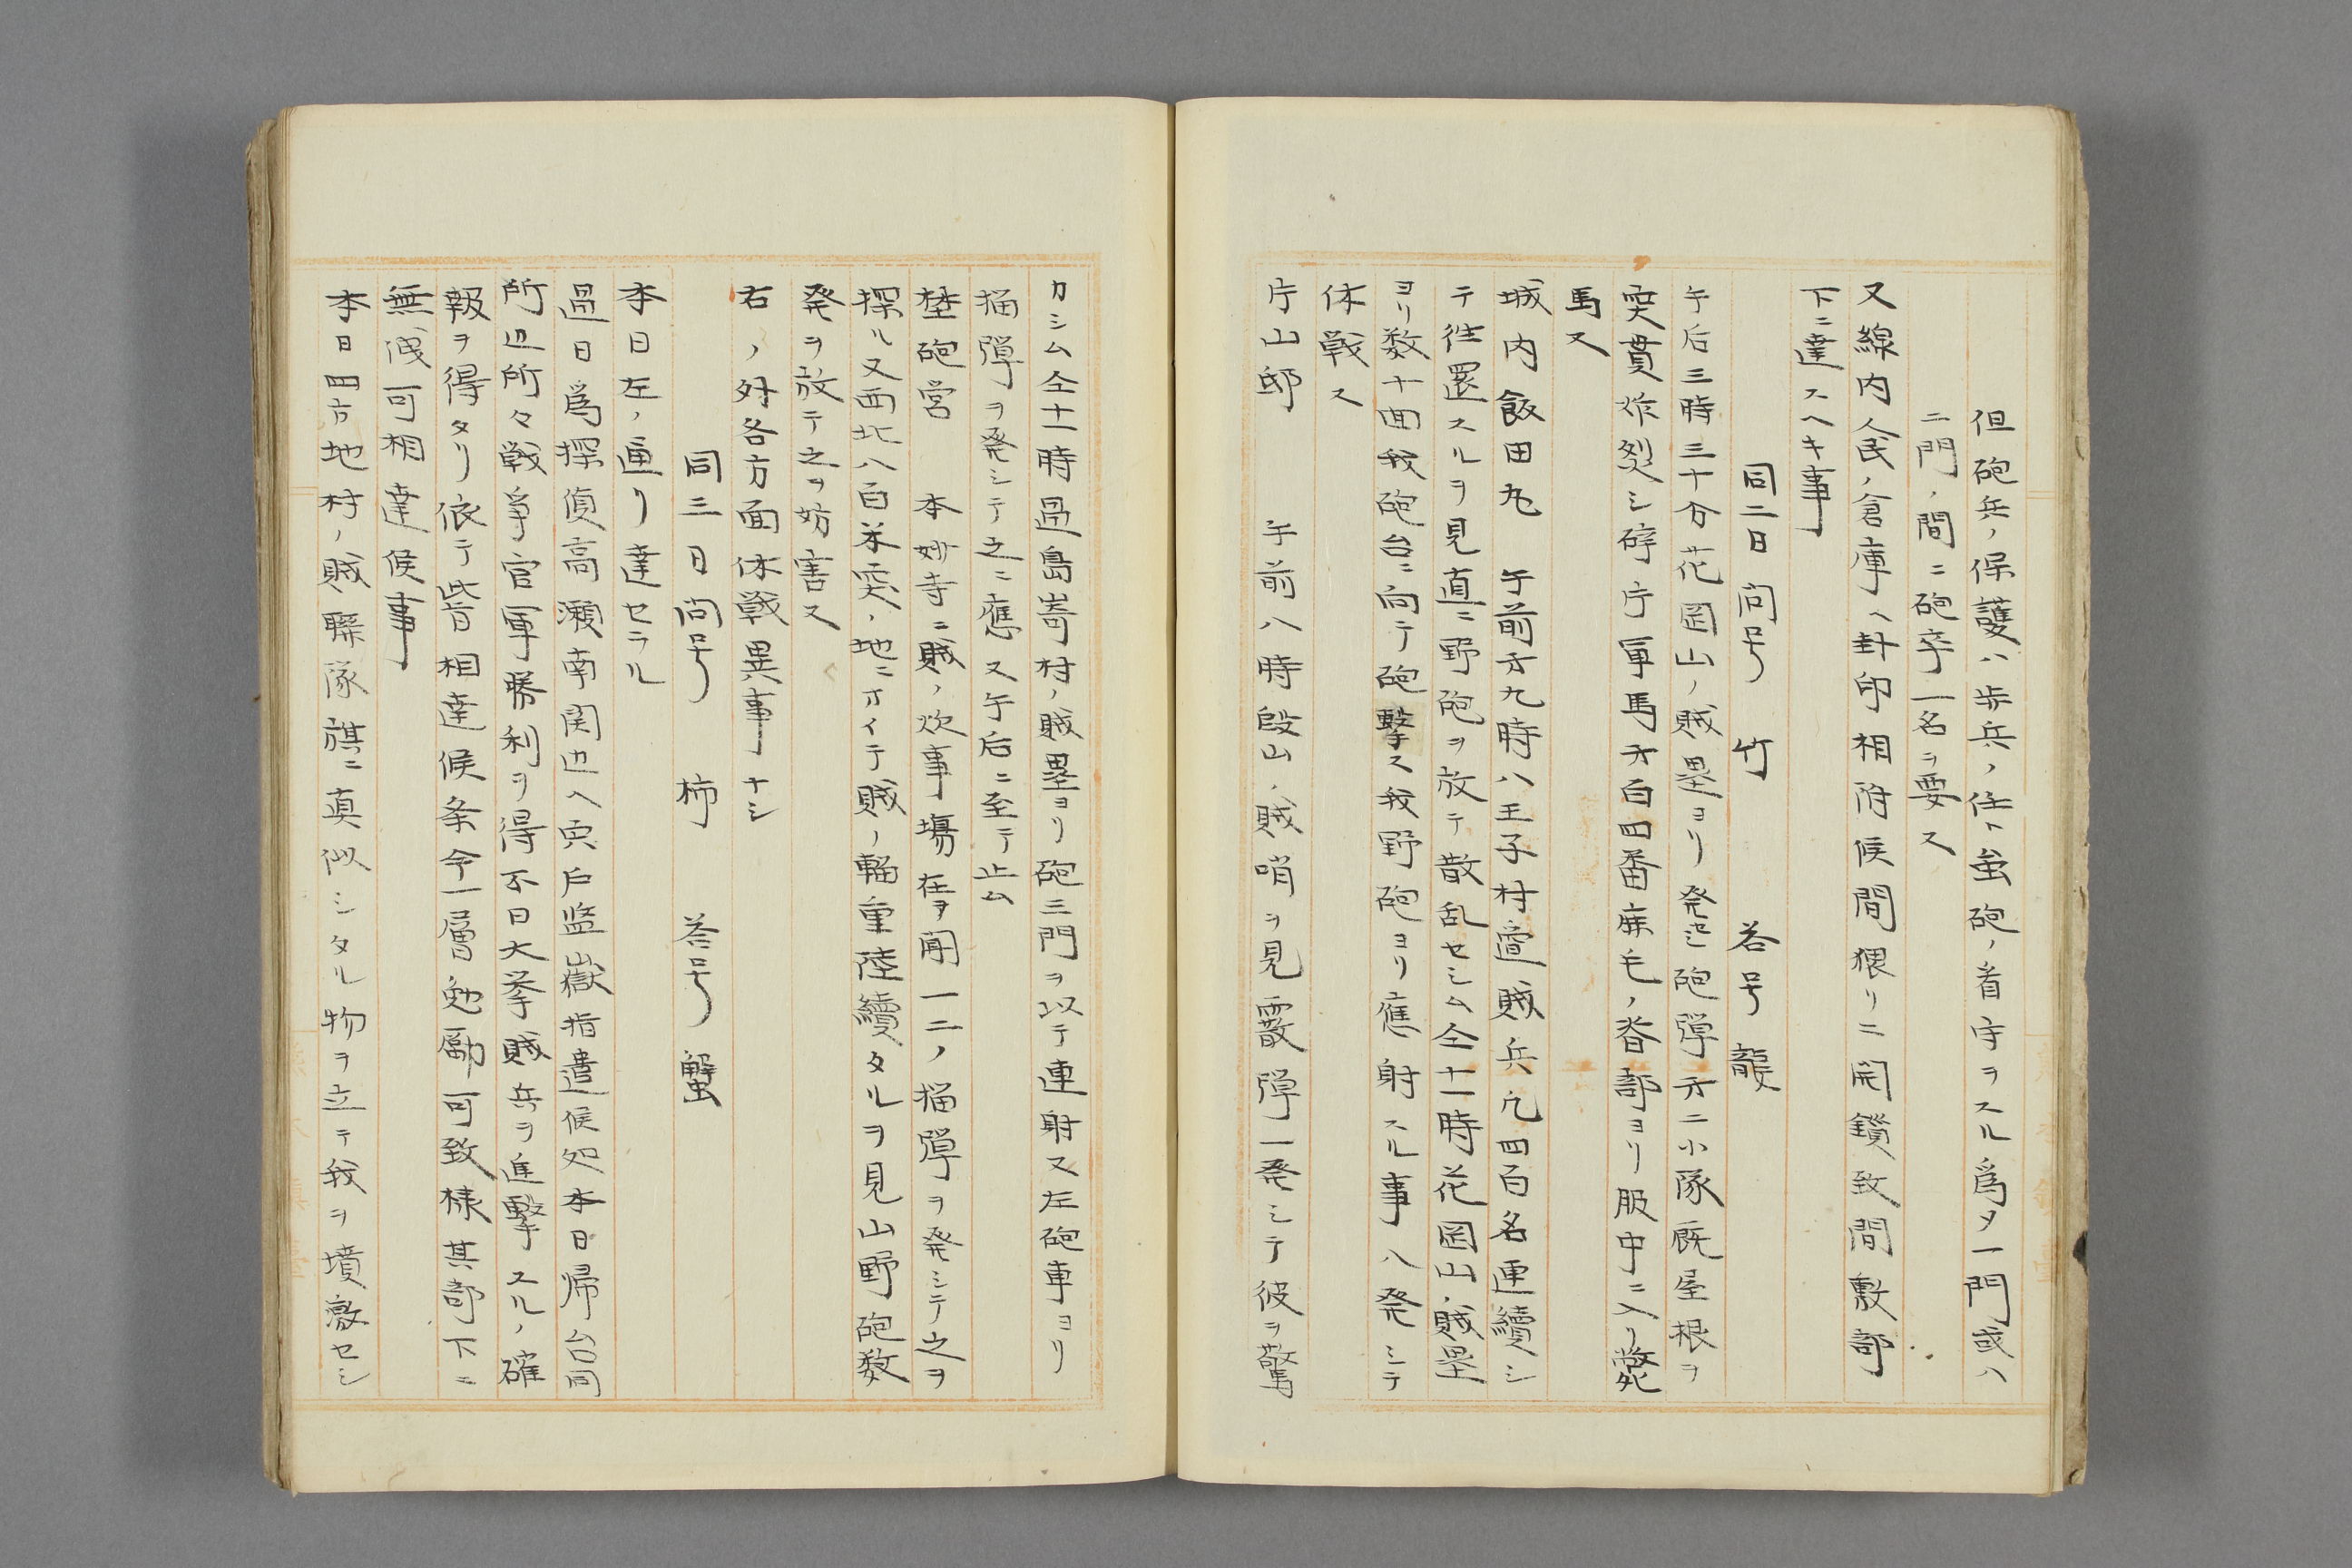 但砲兵ノ保護ハ歩兵ノ任ト虽砲ノ看守ヲスル爲メ一門或ハ
二門ノ間ニ砲卒一名ヲ要ス
又線内人民ノ倉庫ハ封印相附候間猥リニ開鎖致間敷部
下ニ達スヘキ事
同二日 问号 竹 荅号 龍
午后三時三十分花囶山ノ賊塁ヨリ発セシ砲弾才二小隊厩屋根ヲ
突貫炸裂シ砕片軍馬才百四番麻毛ノ脊部ヨリ腹中ニ入リ斃
馬ス
城内飯田丸 午前才九時八王子村邉賊兵凢四百名連續シ
テ徃還スルヲ見直ニ野砲ヲ放テ散乱セシム仝十一時花囶山ノ賊塁
ヨリ数十回我砲台ニ向テ砲撃ス我野砲ヨリ應射スル事八発シテ
休戦ス
片山邸 午前八時段山ノ賊哨ヲ見霰弾一発シテ彼ヲ驚
カシム仝十一時過島嵜村ノ賊塁ヨリ砲三門ヲ以テ連射又左砲車ヨリ
榴弾ヲ発シテ之ニ應又午后ニ至テ止ム
埜砲営 本妙寺ニ賊ノ炊事場在ヲ聞一二ノ榴弾ヲ発シテ之ヲ
探ル又西北八百米突ノ地ニオイテ賊ノ輜重陸續タルヲ見山野砲数
発ヲ放テ之ヲ妨害ス
右ノ外各方面休戦異事ナシ
同三日 问号 柿 荅号 蟹
本日左ノ通リ達セラル
過日爲探偵高瀬南関辺ヘ宍戸監獄指遣候処本日帰台同
所辺所々戦争官軍勝利ヲ得不日大挙賊兵ヲ進撃スルノ確
報ヲ得タリ依テ皆相達候条今一層勉励可致様其部下ニ
無伐可相達候事
本日四方地村ノ賊聯隊旗ニ真似シタル物ヲ立テ我ヲ墳激セシ